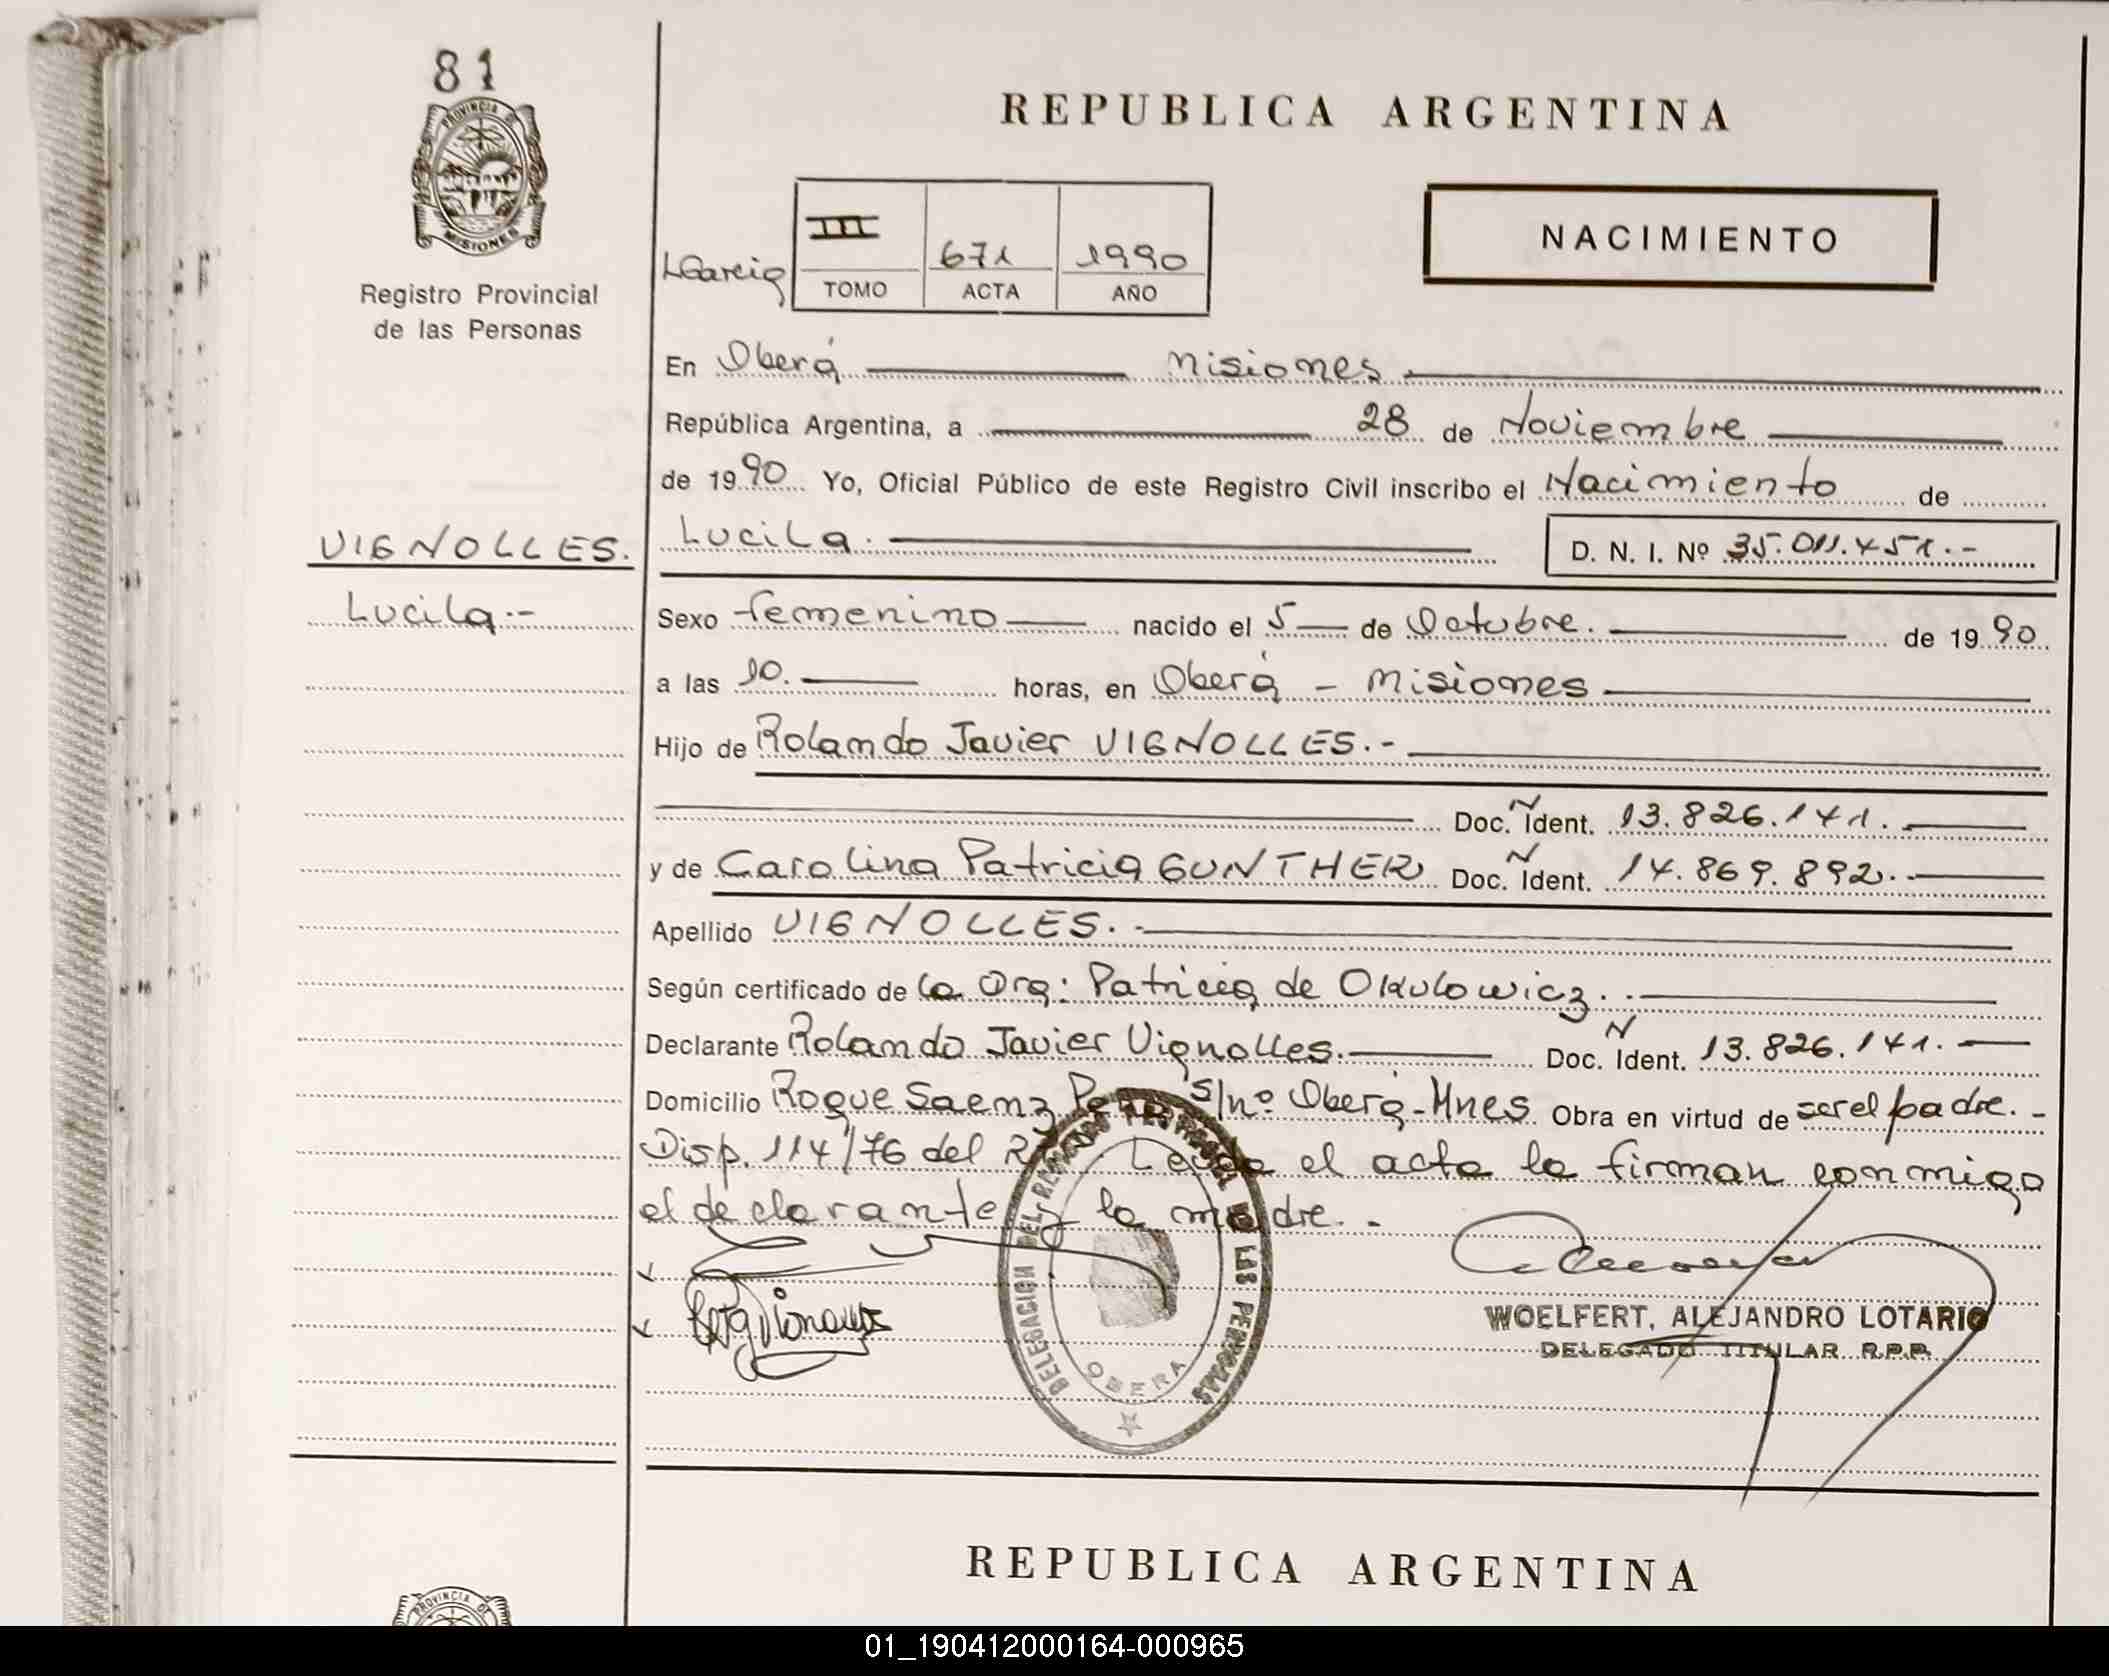 81
PROVINCIA DE
MISIONES
Registro Provincial
de las Personas
REPUBLICA ARGENTINA
NACIMIENTO
LGarcia
III 671 1990
TOMO ACTA AÑO
En Oberá Misiones
República Argentina, a 28 de Noviembre
de 1990 Yo, Oficial Público de este Registro Civil inscribo el Nacimiento de
VIGNOLLES.
Lucila.-
Lucila. D. N. I. Nº 35.011.451.-
Sexo femenino nacido el 5 de Octubre. de 1990
a las 10. horas, en Oberá - Misiones
Hijo de Rolando Javier VIGNOLLES.-
Doc. N Ident. 13.826.141.
y de Carolina Patricia GUNTHER Doc. N Ident. 14.869.892.
Apellido VIGNOLLES.-
Según certificado de la Dra: Patricia de Okulowicz.
Declarante Rolando Javier Vignolles. Doc. N Ident. 13.826.141.
Domicilio Roque Saenz Peña S/nº Oberá-Mnes Obra en virtud de ser el padre.-
Disp. 114/76 del Leída el acta la firman conmigo
el declarante y la madre.-
DELEGACION DEL REGISTRO PROVINCIAL DE LAS PERSONAS
OBERA
WOELFERT, ALEJANDRO LOTARIO
DELEGADO TITULAR R.P.P.
REPUBLICA ARGENTINA
PROVINCIA DE
01_190412000164-000965